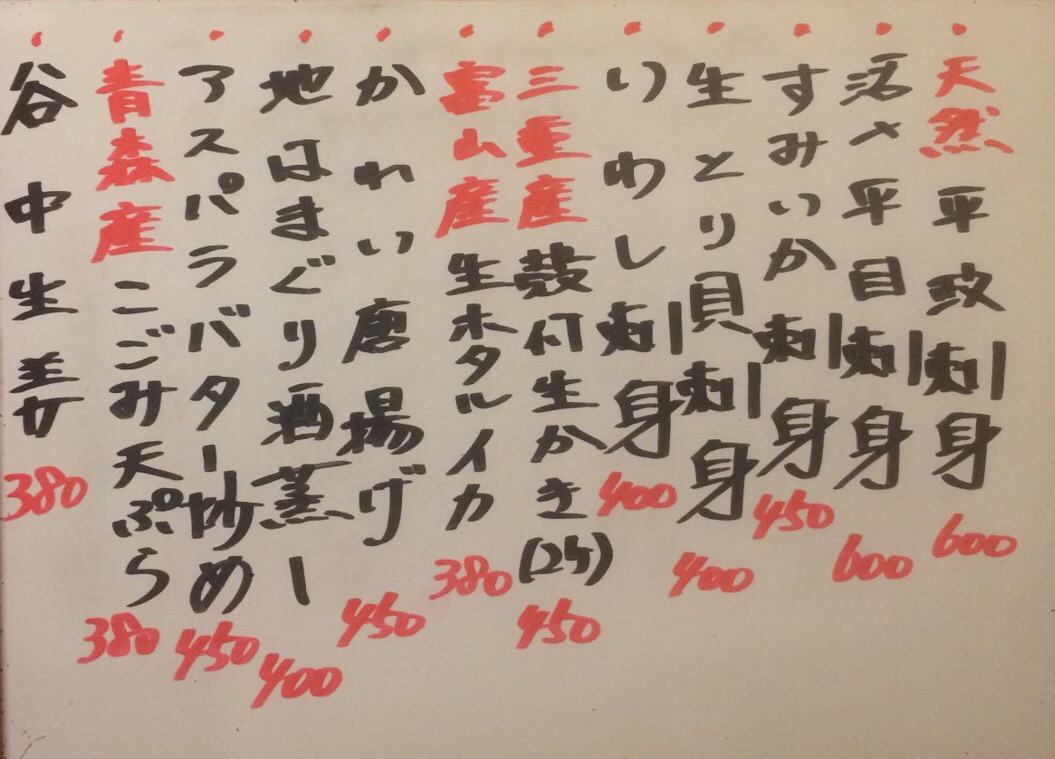 天然平政刺身 600
活〆平目刺身 600
すみいか刺身 450
生とり貝刺身 400
いわし刺身 400
三重産殻付生かき(2ケ) 450
富山産生ホタルイカ 380
かれい唐揚げ 450
地はまぐり酒蒸し 400
アスパラバター炒め 450
青森産こごみ天ぷら 380
谷中生姜 380